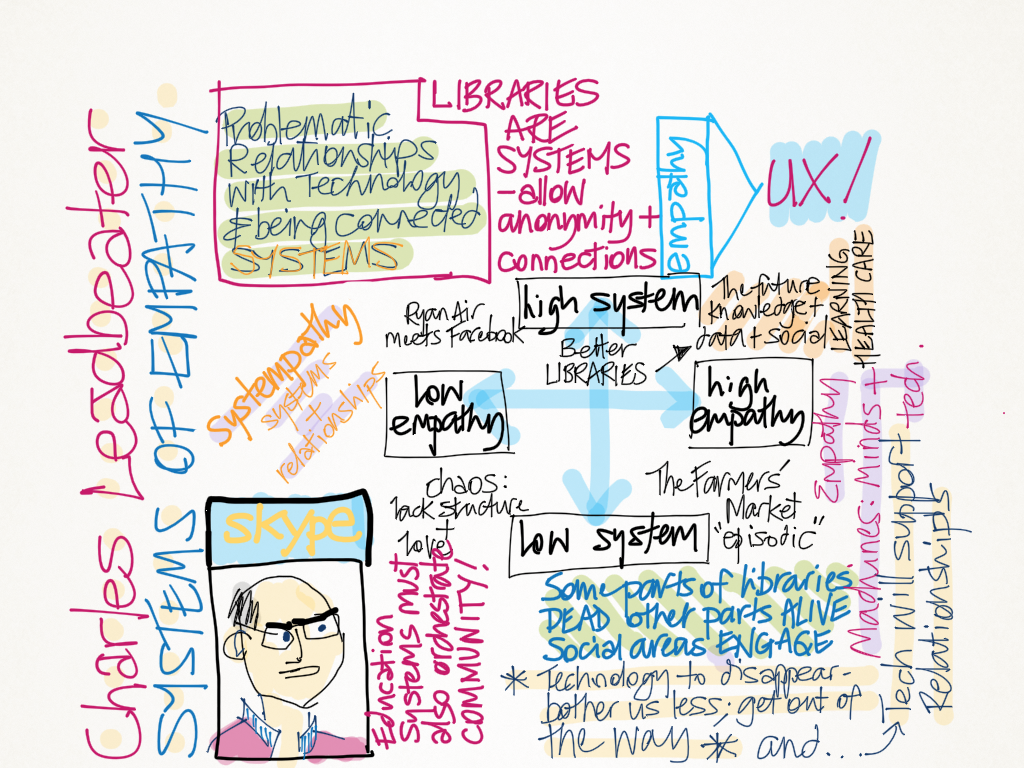 Charles Leadbeater
SYSTEMS OF EMPATHY.
Problematic
Relationships
with Technology
& being connected
SYSTEMS
LIBRARIES
ARE
SYSTEMS
-allow
anonymity +
connections
empathy
UX!
Ryan Air
meets Facebook
high system
The future
knowledge +
data + social
LEARNING
HEALTH CARE
Better
LIBRARIES
systempathy
systems
+
relationships
low
empathy
high
empathy
chaos:
lack structure
+
love
The Farmers'
Market
"episodic"
low system
Empathy
Madhunes: Minds +
tech.
skype
Education
Systems must
also orchestrate
COMMUNITY!
Some parts of libraries
DEAD other parts ALIVE
Social areas ENGAGE
* Technology to disappear-
bother us less; get out of
the way * and...
Tech will support
Relationships